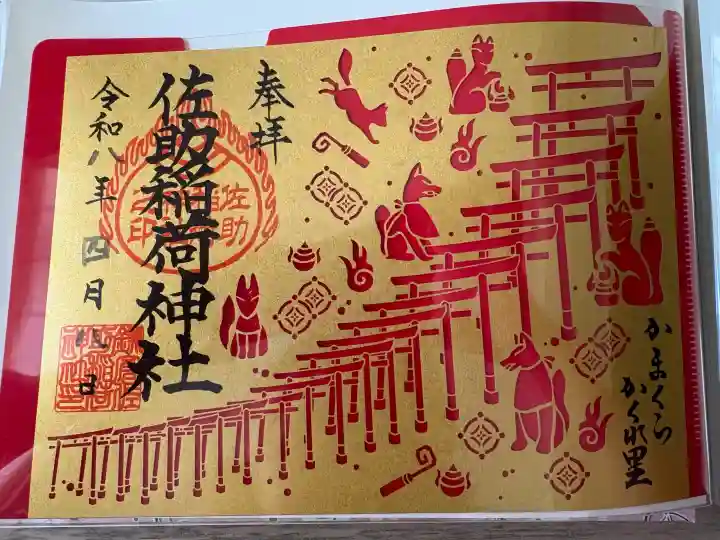 奉拝
佐助稲荷神社
佐助
印
令和八年四月
日
かまくら
かくれ里